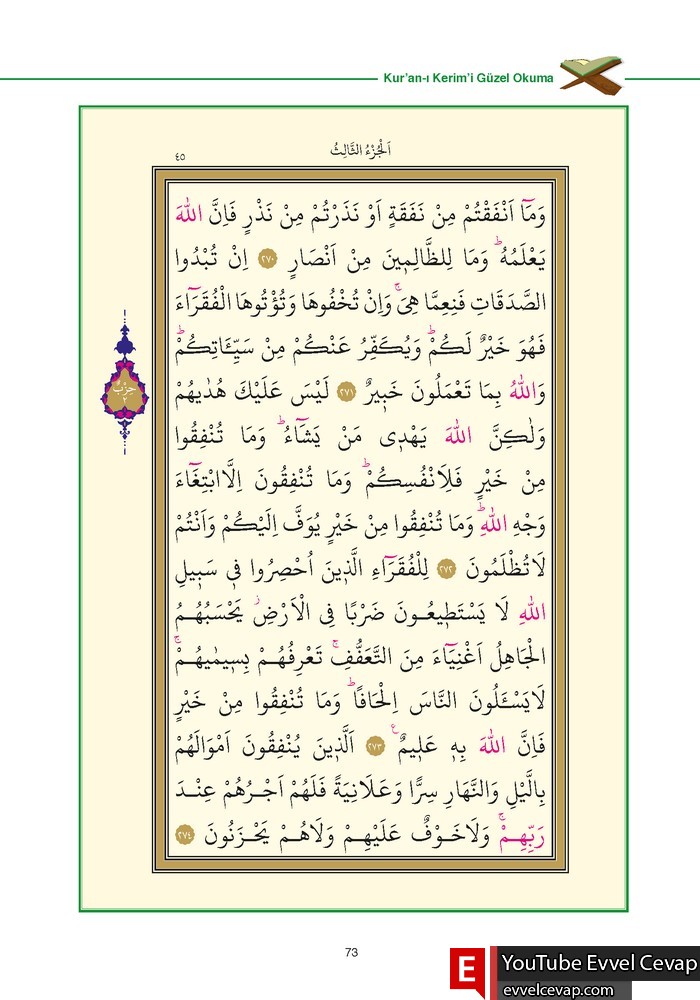 Kur’an-ı Kerim’i Güzel Okuma
اَلْجُزْءُ الثَّالِثُ
٤٥
وَمَٓا اَنْفَقْتُمْ مِنْ نَفَقَةٍ اَوْ نَذَرْتُمْ مِنْ نَذْرٍ فَاِنَّ اللّٰهَ
يَعْلَمُهُۜ وَمَا لِلظَّالِم۪ينَ مِنْ اَنْصَارٍ ﴿٢٧٠﴾ اِنْ تُبْدُوا
الصَّدَقَاتِ فَنِعِمَّا هِيَۚ وَاِنْ تُخْفُوهَا وَتُؤْتُوهَا الْفُقَرَٓاءَ
فَهُوَ خَيْرٌ لَكُمْۜ وَيُكَفِّرُ عَنْكُمْ مِنْ سَيِّـَٔاتِكُمْۜ
وَاللّٰهُ بِمَا تَعْمَلُونَ خَب۪يرٌ ﴿٢٧١﴾ لَيْسَ عَلَيْكَ هُدٰيهُمْ
وَلٰكِنَّ اللّٰهَ يَهْد۪ي مَنْ يَشَٓاءُۜ وَمَا تُنْفِقُوا
مِنْ خَيْرٍ فَلِاَنْفُسِكُمْۜ وَمَا تُنْفِقُونَ اِلَّا ابْتِغَٓاءَ
وَجْهِ اللّٰهِۜ وَمَا تُنْفِقُوا مِنْ خَيْرٍ يُوَفَّ اِلَيْكُمْ وَاَنْتُمْ
لَا تُظْلَمُونَ ﴿٢٧٢﴾ لِلْفُقَرَٓاءِ الَّذ۪ينَ اُحْصِرُوا ف۪ي سَب۪يلِ
اللّٰهِ لَا يَسْتَط۪يعُونَ ضَرْبًا فِي الْاَرْضِۘ يَحْسَبُهُمُ
الْجَاهِلُ اَغْنِيَٓاءَ مِنَ التَّعَفُّفِۚ تَعْرِفُهُمْ بِس۪يمٰيهُمْۚ
لَا يَسْـَٔلُونَ النَّاسَ اِلْحَافًاۜ وَمَا تُنْفِقُوا مِنْ خَيْرٍ
فَاِنَّ اللّٰهَ بِه۪ عَل۪يمٌ۟ ﴿٢٧٣﴾ اَلَّذ۪ينَ يُنْفِقُونَ اَمْوَالَهُمْ
بِالَّيْلِ وَالنَّهَارِ سِرًّا وَعَلَانِيَةً فَلَهُمْ اَجْرُهُمْ عِنْدَ
رَبِّهِمْۚ وَلَا خَوْفٌ عَلَيْهِمْ وَلَا هُمْ يَحْزَنُونَ ﴿٢٧٤﴾
حِزْبٌ
٢
73
E YouTube Evvel Cevap
evvelcevap.com